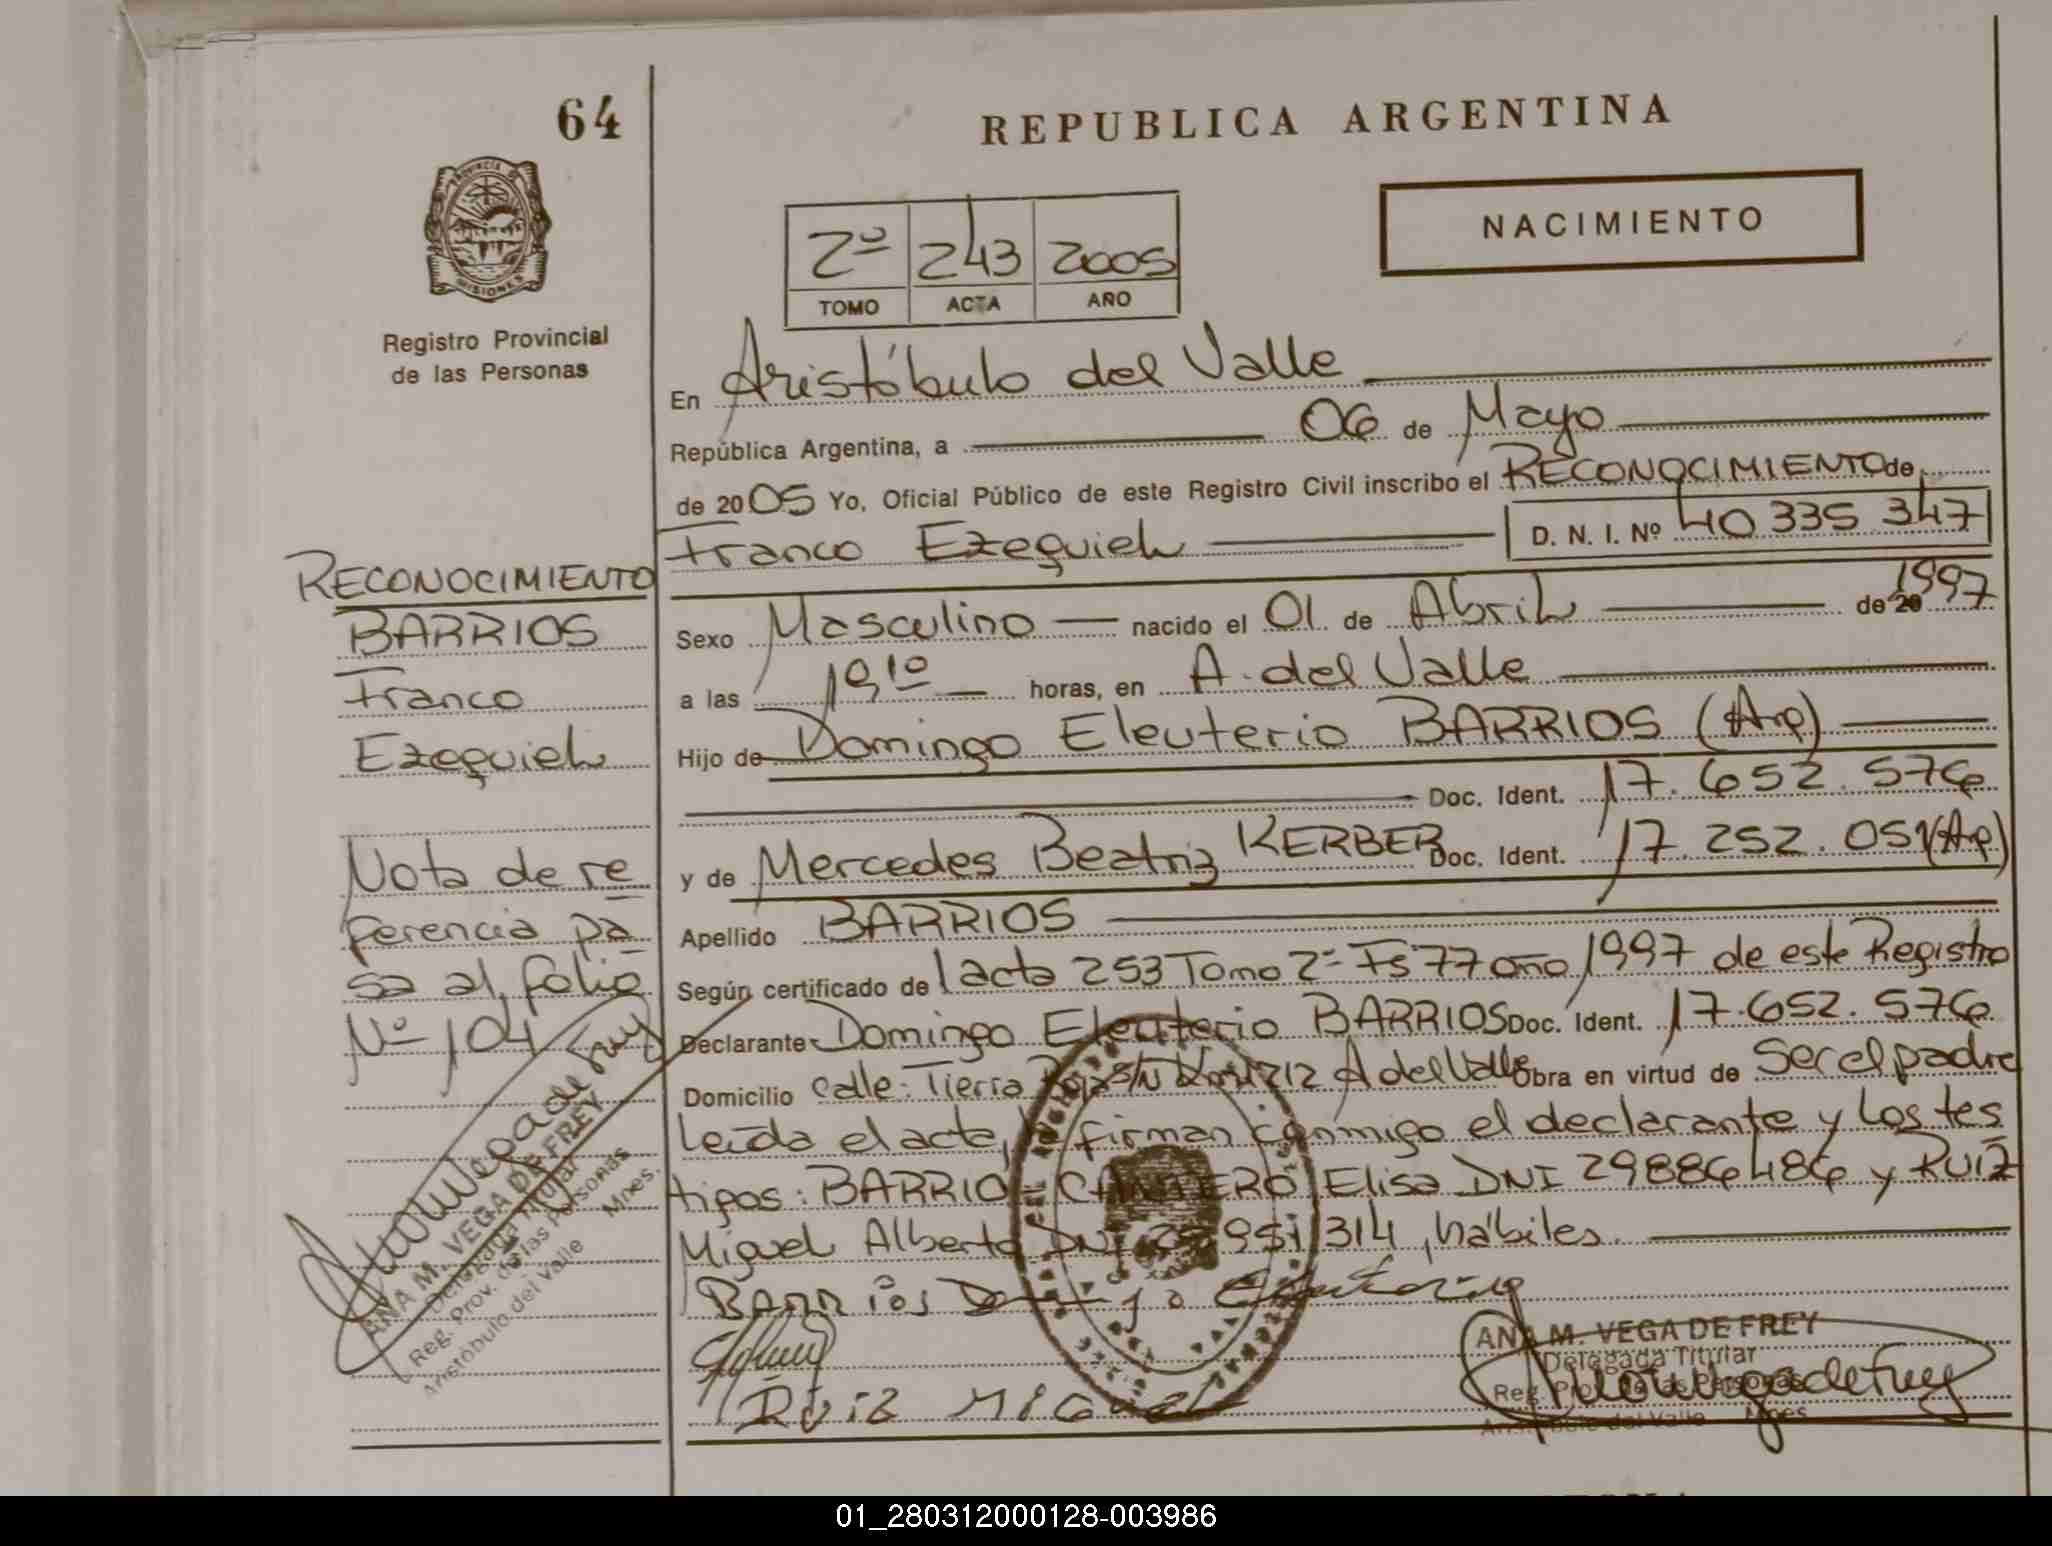 64
REPUBLICA ARGENTINA
PROVINCIA D
MISIONES
Registro Provincial
de las Personas
NACIMIENTO
2º 243 2005
TOMO ACTA AÑO
En Aristóbulo del Valle
República Argentina, a 06 de Mayo
de 2005 Yo, Oficial Público de este Registro Civil inscribo el RECONOCIMIENTO de
Franco Ezequiel D. N. I. Nº 40 335 347
Sexo Masculino nacido el 01 de Abril de 20 1997
a las 19 10 horas, en A. del Valle
Hijo de Domingo Eleuterio BARRIOS (Arg)
Doc. Ident. 17.652.576
y de Mercedes Beatriz KERBER Doc. Ident. 17.252.051 (Arg)
Apellido BARRIOS
Según certificado de acta 253 Tomo 2º Fs 77 año 1997 de este Registro
Declarante Domingo Eleuterio BARRIOS Doc. Ident. 17.652.576
Domicilio calle: Tierra Roja S/N Km 1212 A del Valle Obra en virtud de Ser el padre
leída el acta, firman conmigo el declarante y los tes
tigos: BARRIOS Elisa DNI 29886486 y RUIZ
Miguel Alberto DNI 951 314, hábiles.
BARRios Domingo Eleuterio
Ruiz Miguel
ANA M. VEGA DE FREY
Delegada Titular
Reg. Prov. de las Personas
Aristóbulo del Valle Mnes
RECONOCIMIENTO
BARRIOS
Franco
Ezequiel
Nota de re
ferencia pa
sa al folio
Nº 104
ANA M. VEGA DE FREY
Delegada Titular
Reg. Prov. de las Personas
Aristóbulo del Valle Mnes.
01_280312000128-003986